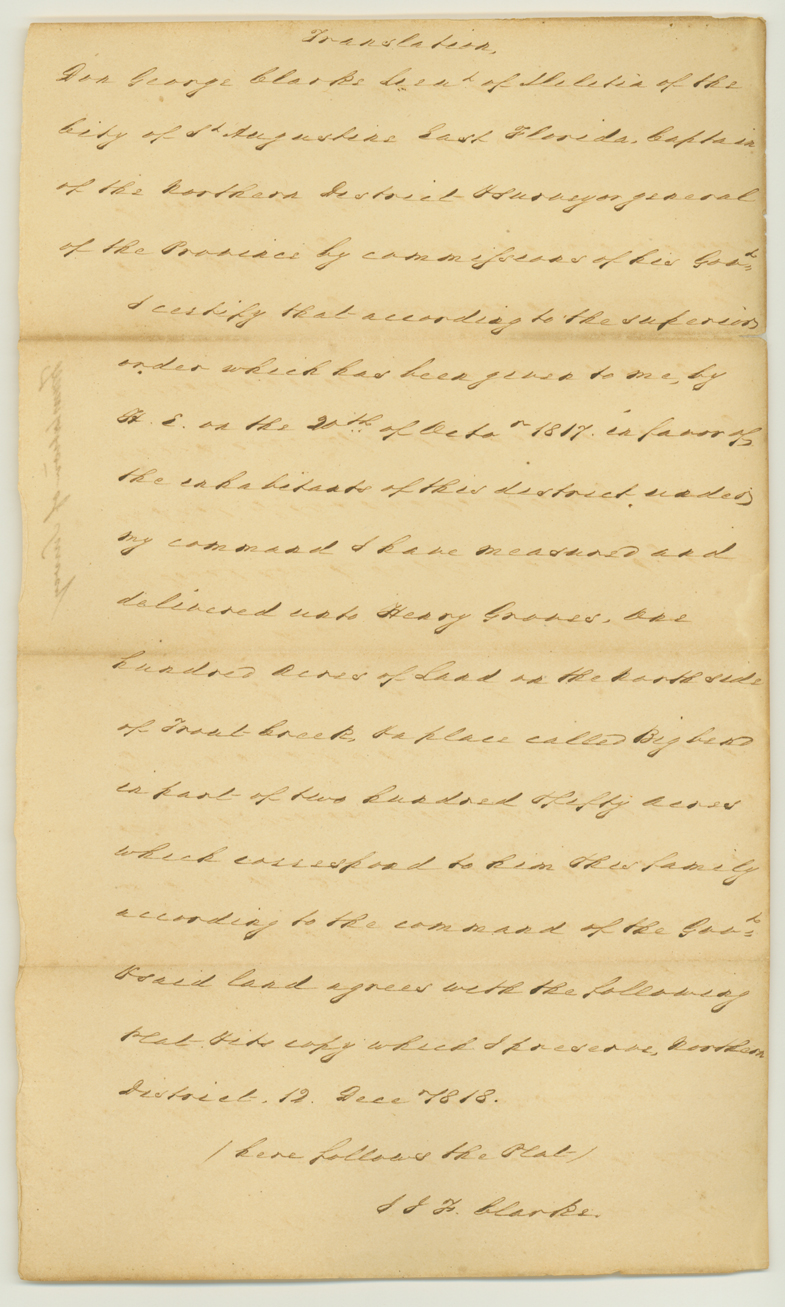 Translation,
Don George Clarke Lieut of Meletia of the
City of St Augustine East Florida, Captain
of the Northern District & Surveyor general
of the Province by commissions of his Govt
I certify that according to the superior
order which has been given to me, by
H. E. on the 20th of Octor 1817. in favor of
the inhabitants of this district under
my command I have measured and
delivered unto Henry Groves, One
hundred Acres of Land on the North side
of Trout Creek, & a place called Big bend
in part of two hundred & fifty Acres
which correspond to him & his family
according to the command of the Govt
& said land agrees with the following
Plat & its copy which I preserve, Northern
District, 12. Dece 1818.
(here follows the Plat)
J J F. Clarke.